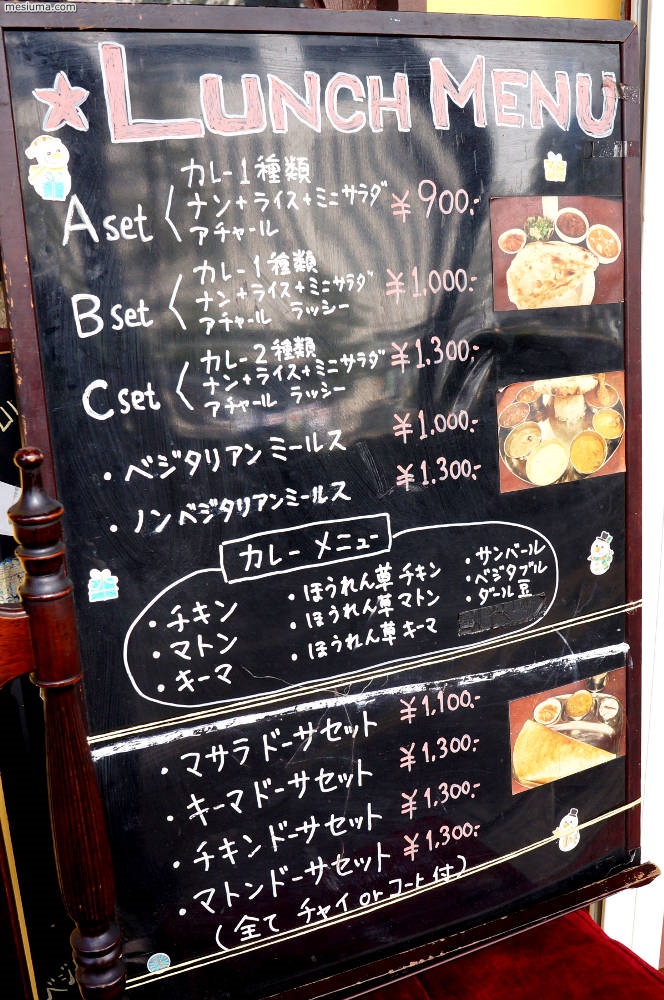 mesiuma.com
LUNCH MENU
A set
カレー1種類
ナン+ライス+ミニサラダ ¥900.-
アチャール
B set
カレー1種類
ナン+ライス+ミニサラダ ¥1,000.-
アチャール ラッシー
C set
カレー2種類
ナン+ライス+ミニサラダ ¥1,300.-
アチャール ラッシー
・ベジタリアンミールス ¥1,000.-
・ノンベジタリアンミールス ¥1,300.-
カレーメニュー
・チキン
・マトン
・キーマ
・ほうれん草チキン
・ほうれん草マトン
・ほうれん草キーマ
・サンバール
・ベジタブル
・ダール豆
・マサラドーサセット ¥1,100.-
・キーマドーサセット ¥1,300.-
・チキンドーサセット ¥1,300.-
・マトンドーサセット ¥1,300.-
(全て チャイ or コート付)